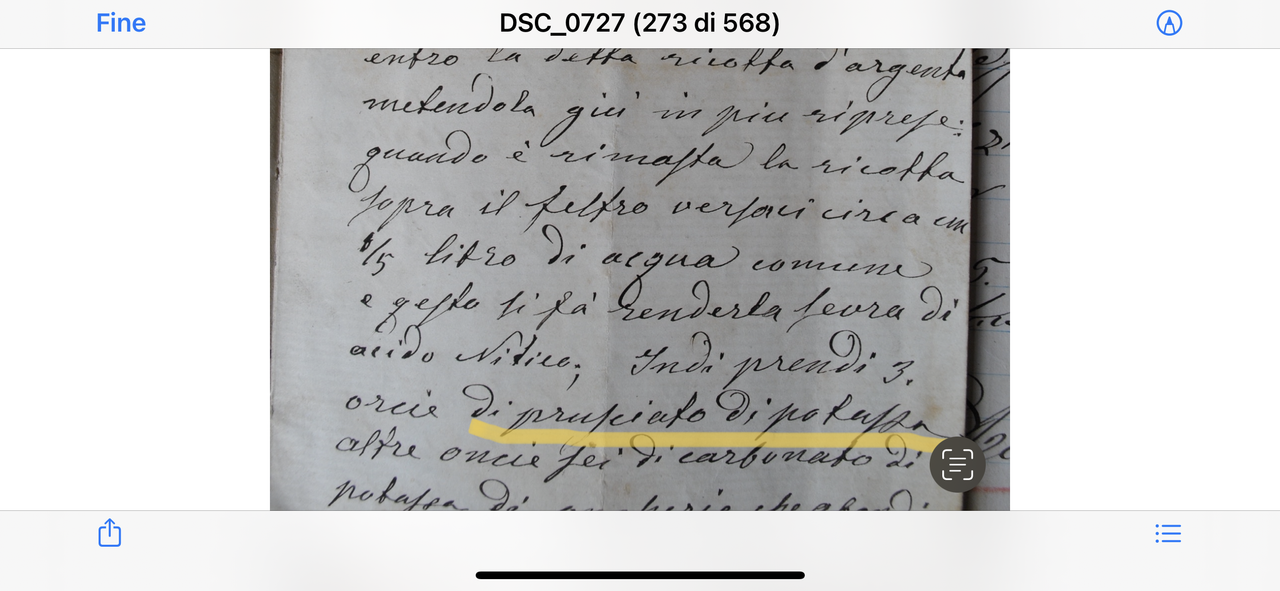 Fine
DSC_0727 (273 di 568)
entro la detta ricotta d'argento
metendola giù in piu riprese:
quando è rimasta la ricotta
sopra il feltro versaci circa un
1/5 litro di acqua comune
e qesto si fà renderla sevra di
acido Nitico; Indi prendi 3.
orcie di prusiato di potassa
altre oncie sei di carbonato di
potassa di